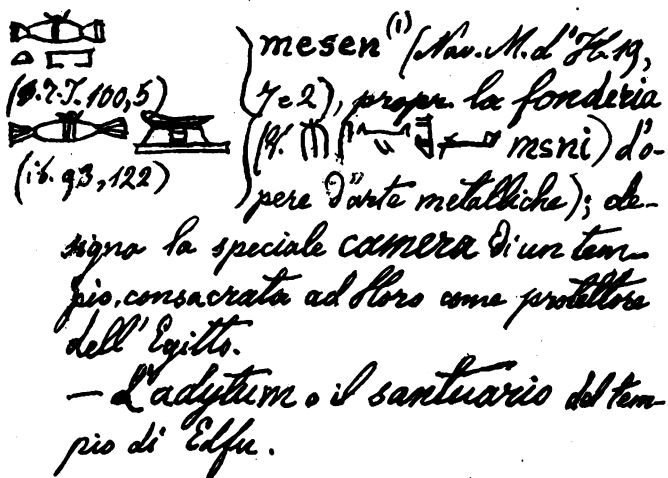 mesen (1) (Nav. M. d'H. 19,
(D.T.I. 100,5) 7 e 2), propr. la fonderia
(cf. msni) d'o-
(ib. 93,122) pere d'arte metalliche); de-
signa la speciale camera di un tem-
pio, consacrata ad Horo come protettore
dell'Egitto.
— L'adytum o il santuario del tem-
pio di Edfu.